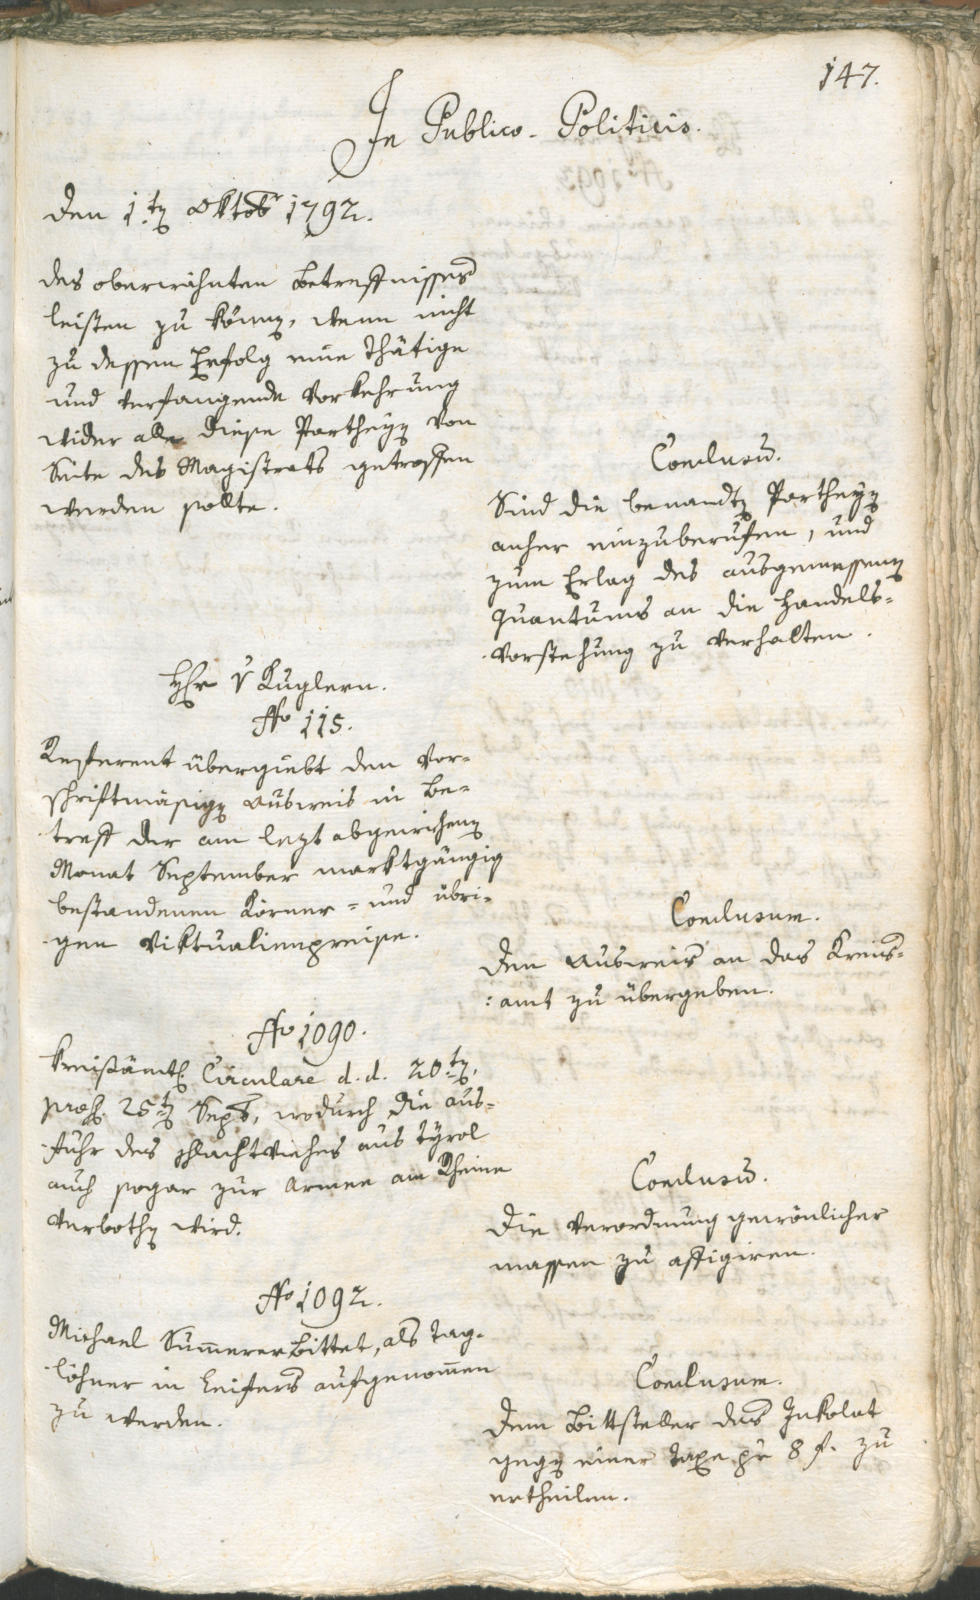 147.
In Publico-Politicis.
den 1.ten Oktobr 1792.
des oberwähnten Betreffnisses
leisten zu können, wenn nicht
zu dessen Erfolg eine thätige
und verfangende Vorkehrung
wider alle diese Partheyen von
Seite des Magistrats getroffen
werden sollte.
Conclusum.
Sind die benandten Partheyen
anher einzuberufen, und
zum Erlag des ausgemessenen
Quantums an die Handels-
vorstehung zu verhalten.
Hr v Kuglern.
No 115.
Referent übergiebt den vor-
schriftmäsigen Ausweis in Be-
treff der am lezt abgewichenen
Monat September marktgängig
bestandenen Körner- und übri-
gen Viktualienpreise.
Conclusum.
Den Ausweis an das Kreis-
amt zu übergeben.
No 1090.
Kreisämtl. Circulare d. d. 20ten,
præs. 25ten Sept, wodurch die Aus-
fuhr des Schlachtviehes aus Tÿrol
auch sogar zur Armee am Rheine
verbothen wird.
Conclusum.
Die Verordnung gewönlicher
massen zu affigiren.
No 1092.
Michael Sum̅erer Bittet, als Tag-
löhner in Leifers aufgenom̅en
zu werden.
Conclusum.
Dem Bittsteller das Inkolat
gegen einer Taxe pr 8 f. zu
ertheilen.